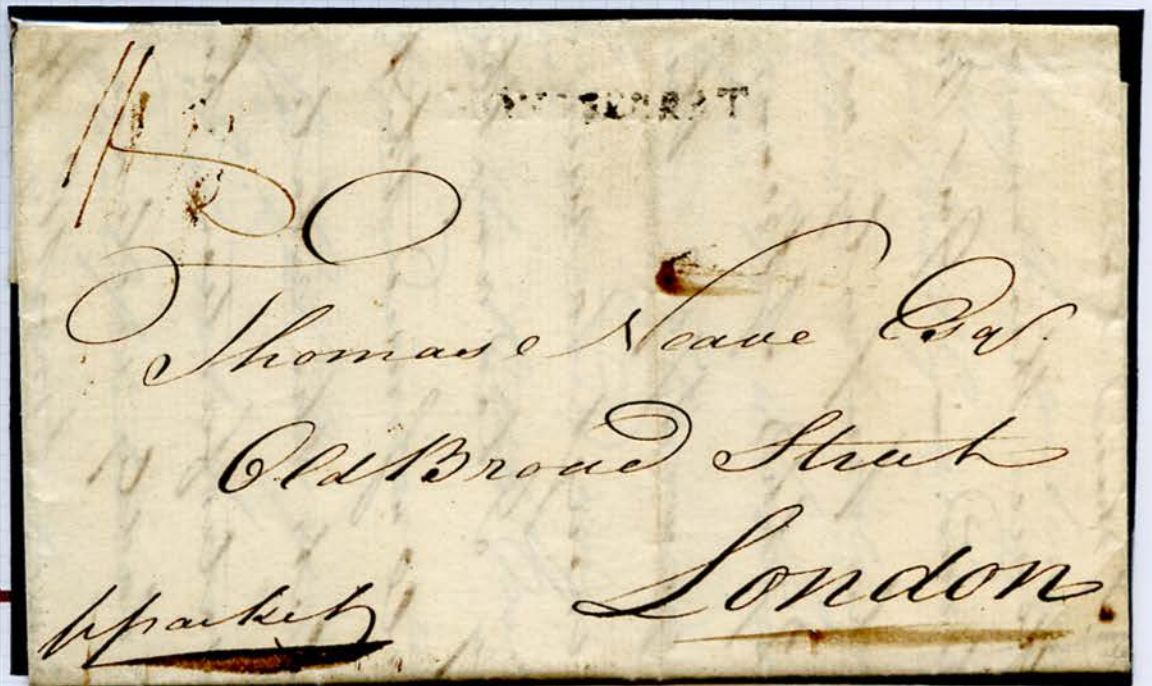 MONTSERRAT
Thomas Neave Esqr.
Old Broad Street
London
p packet